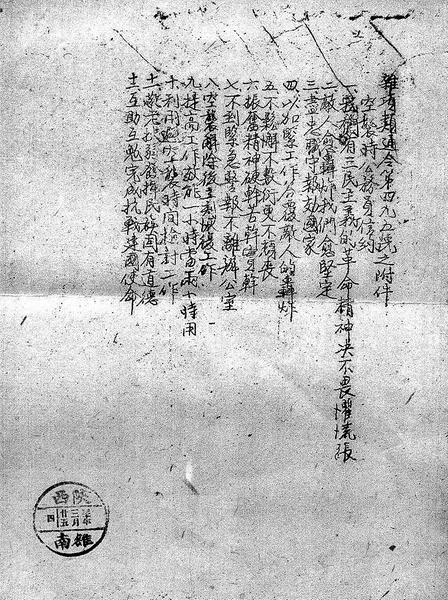 雒有類通令第四九五號之附件
空襲時公務員信約
一我們有三民主義的革命精神決不畏懼慌張
二敵人愈轟炸我們愈堅定
三盡忠職守報効國家
四以加緊工作答覆敵人的轟炸
五不鬆懈不敷衍更不頹喪
六振奮精神硬幹苦幹實幹
七不到緊急警報不離辦公室
八空襲解除後立刻恢復工作
九提高工作效能一小時當兩小時用
十利用避空襲時間檢討工作
十一敬老扶弱發揮民族固有道德
十二互助互勉完成抗戰建國使命
陝西
三月
廿五
四
雒南